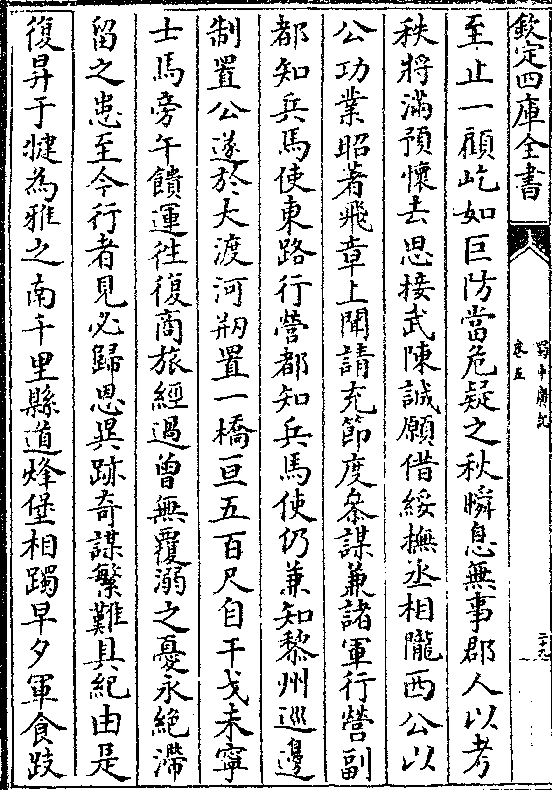 欽定四庫全書
蜀中廣記
卷五
二十九
至止一顧屹如巨防當危疑之秋瞬息無事郡人以考
秩將滿預懷去思接武陳誠願借綏撫丞相隴西公以
公功業昭著飛章上聞請充節度叅謀兼諸軍行營副
都知兵馬使東路行營都知兵馬使仍兼知黎州巡邊
制置公遂於大渡河剏置一橋亘五百尺自干戈未寧
士馬旁午饋運徃復商旅經過曾無覆溺之憂永絶滯
留之患至今行者見必歸恩異跡奇謀繁難具紀由是
復昇于犍為雅之南千里縣道烽堡相躅早夕軍食跂